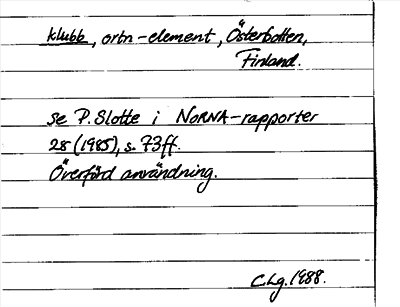 klubb, ortn-element, Österbotten,
Finland.
se P. Slotte i NORNA-rapporter
28 (1985), s. 73ff.
Överförd användning.
C.Lg. 1988.